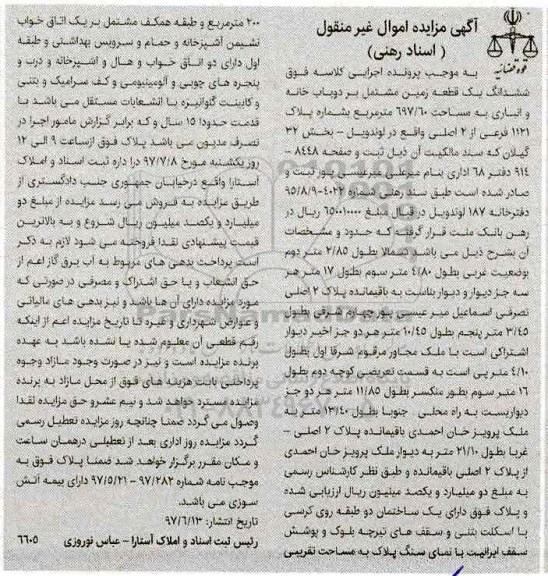 آگهی مزایده اموال غیر منقول
( اسناد رهنی)
قوه قضائیه
به موجب پرونده اجرایی کلاسه فوق
ششدانگ یک قطعه زمین مشتمل بر دوباب خانه
و انباری به مساحت ۶۹۷/۶۰ مترمربع بشماره پلاک
۱۱۳۱ فرعی از ۲ اصلی واقع در لوندویل - بخش ۳۲
گیلان که سند مالکیت آن ذیل ثبت و صفحه ۸۴۴۸ -
۹۱۴ دفتر ۶۸ اداری بنام میرعلی میرعیسی پور ثبت و
صادر شده است طبق سند رهنی شماره ۴۰۲۲-۹۵/۸/۹
دفترخانه ۱۸۷ لوندویل در قبال مبلغ ۶۵۰۰۱۰۰۰۰ ریال در
رهن بانک ملت قرار گرفته که حدود و مشخصات
آن بشرح ذیل می باشد شمالا بطول ۲/۸۵ متر دوم
بوضعیت غربی بطول ۴/۸۰ متر سوم بطول ۱۷ متر هر
سه جز دیوار و دیوار بناست به باقیمانده پلاک ۲ اصلی
تصرفی اسماعیل میر عیسی پور چهارم شرقی بطول
۳/۴۵ متر پنجم بطول ۱۰/۴۵ متر هر دو جز اخیر دیوار
اشتراکی است با ملک مجاور مرقوم شرقا اول بطول
۴/۱۰ متر پی است به قسمت تعریضی کوچه دوم بطول
۱۶ متر سوم بطور منکسر بطول ۱۱/۸۵ متر هر دو جز
دیواریست به راه محلی جنوبا بطول ۱۳/۴۰ متر به
ملک پرویز خان احمدی باقیمانده پلاک ۲ اصلی -
غربا بطول ۲۱/۱۰ متر به دیوار ملک پرویز خان احمدی
از پلاک ۲ اصلی باقیمانده و طبق نظر کارشناس رسمی
به مبلغ دو میلیارد و یکصد میلیون ریال ارزیابی شده
و پلاک فوق دارای یک ساختمان دو طبقه روی کرسی
با اسکلت بتنی و سقف های تیرچه بلوک و پوشش
سقف ایرانیت با نمای سنگ پلاک به مساحت تقریبی
۲۰۰ مترمربع و طبقه همکف مشتمل بر یک اتاق خواب
نشیمن آشپزخانه و حمام و سرویس بهداشتی و طبقه
اول دارای دو اتاق خواب و هال و آشپزخانه و درب و
پنجره های چوبی و آلومینیومی و کف سرامیک و بتنی
و کابینت گلوانیزه با انشعابات مستقل می باشد با
قدمت حدودا ۱۵ سال و که برابر گزارش مامور اجرا در
تصرف مدیون می باشد پلاک فوق از ساعت ۹ الی ۱۲
روز یکشنبه مورخ ۹۷/۷/۸ در اداره ثبت اسناد و املاک
آستارا واقع در خیابان جمهوری جنب دادگستری از
طریق مزایده به فروش می رسد مزایده از مبلغ دو
میلیارد و یکصد میلیون ریال شروع و به بالاترین
قیمت پیشنهادی نقدا فروخته می شود لازم به ذکر
است پرداخت بدهی های مربوط به آب برق گاز اعم از
حق انشعاب و یا حق اشتراک و مصرفی در صورتی که
مورد مزایده دارای آن ها باشد و نیز بدهی های مالیاتی
و عوارض شهرداری و غیره تا تاریخ مزایده اعم از اینکه
رقم قطعی آن معلوم شده یا نشده باشد به عهده
برنده مزایده است و نیز در صورت وجود مازاد وجوه
پرداختی بابت هزینه های فوق از محل مازاد به برنده
مزایده مسترد خواهد شد و نیم عشر و حق مزایده نقدا
وصول می گردد ضمنا چنانچه روز مزایده تعطیل رسمی
گردد مزایده روز اداری بعد از تعطیلی در همان ساعت
و مکان مقرر برگزار خواهد شد ضمنا پلاک فوق به
موجب نامه شماره ۹۷/۲۸۲ - ۹۷/۵/۲۱ دارای بیمه آتش
سوزی می باشد.
تاریخ انتشار: ۹۷/۶/۱۳
رئیس ثبت اسناد و املاک آستارا - عباس نوروزی ۶۶۰۵